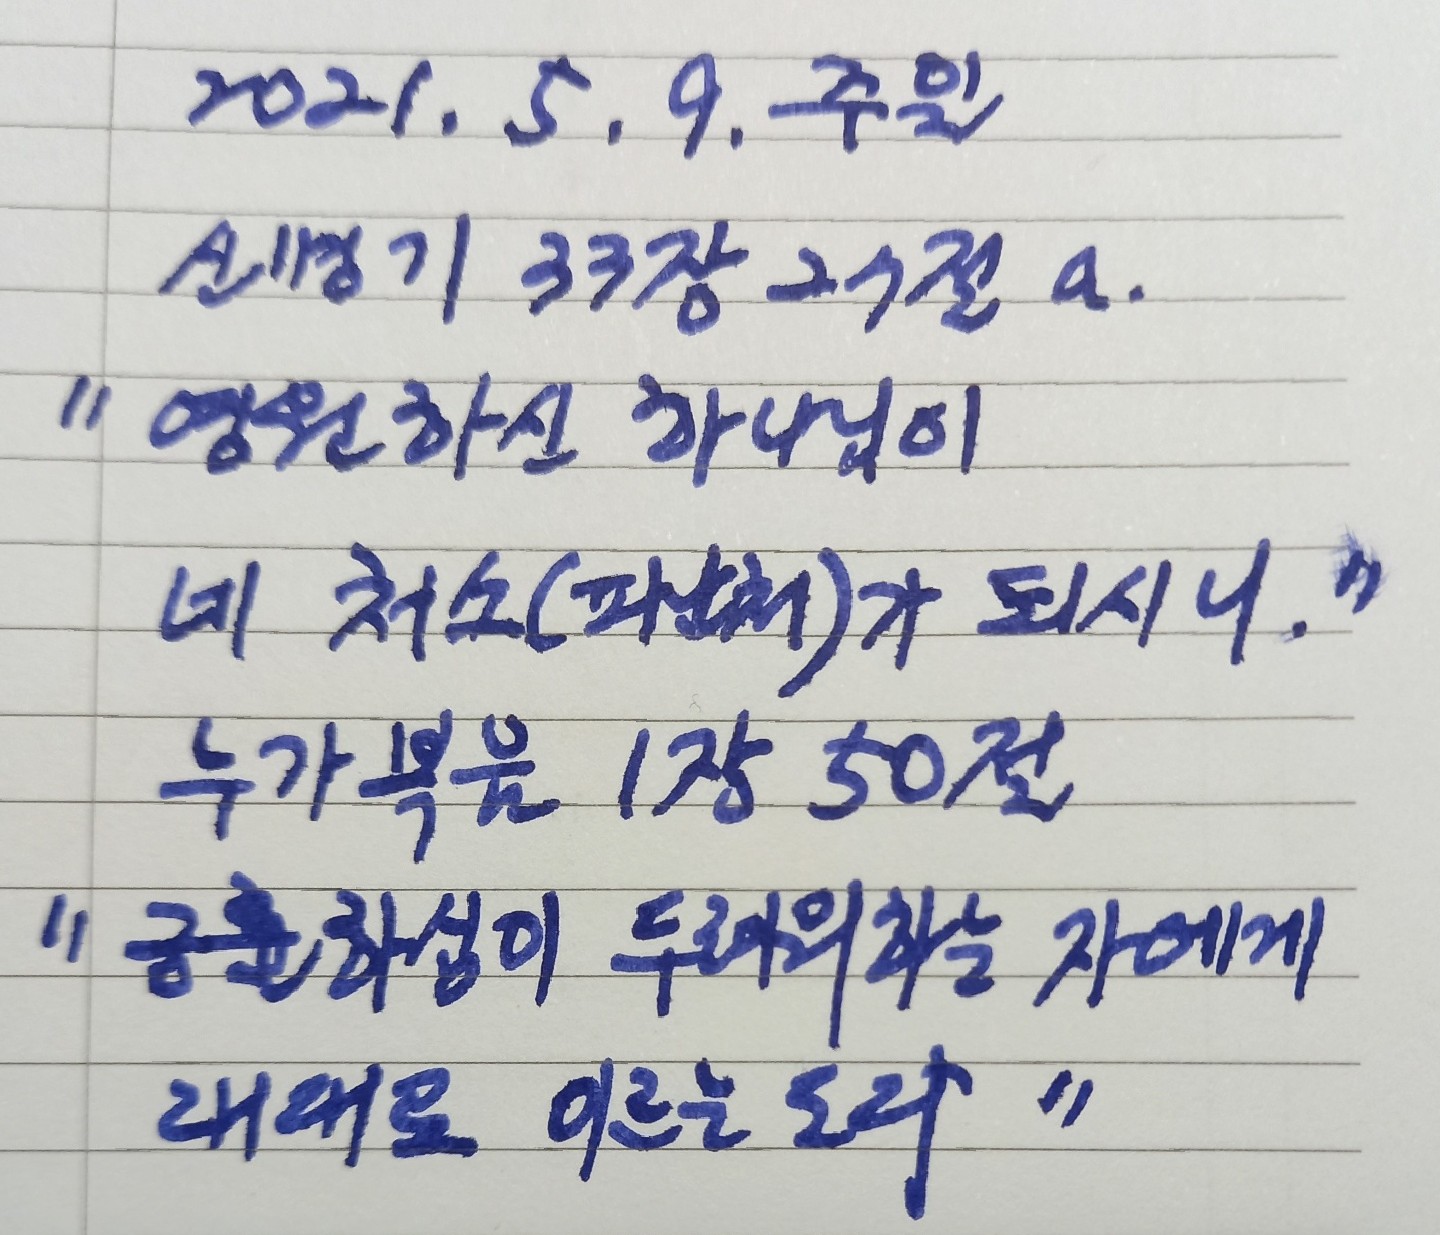 2021. 5. 9. 주일
신명기 33장 27절 a.
" 영원하신 하나님이
네 처소(피난처)가 되시니. "
누가복음 1장 50절
" 긍휼하심이 두려워하는 자에게
대대로 이르는도다 "